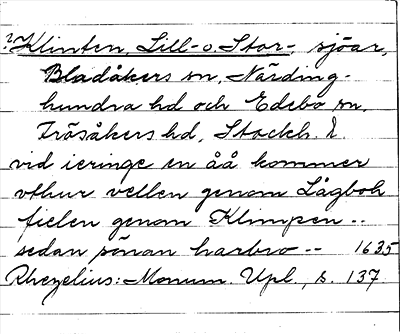 ? Klinten, Lill- o. Stor-, sjöar,
Bladåkers sn, Närding-
hundra hd och Edebo sn,
Fräsåkers hd, Stockh. l
vid ieringe en åå kommer
vthur vellen genom Lågboh
fielen genom Klimpen --
sedan sönan harbro -- 1635
Rhezelius: Monum. Upl., s. 137